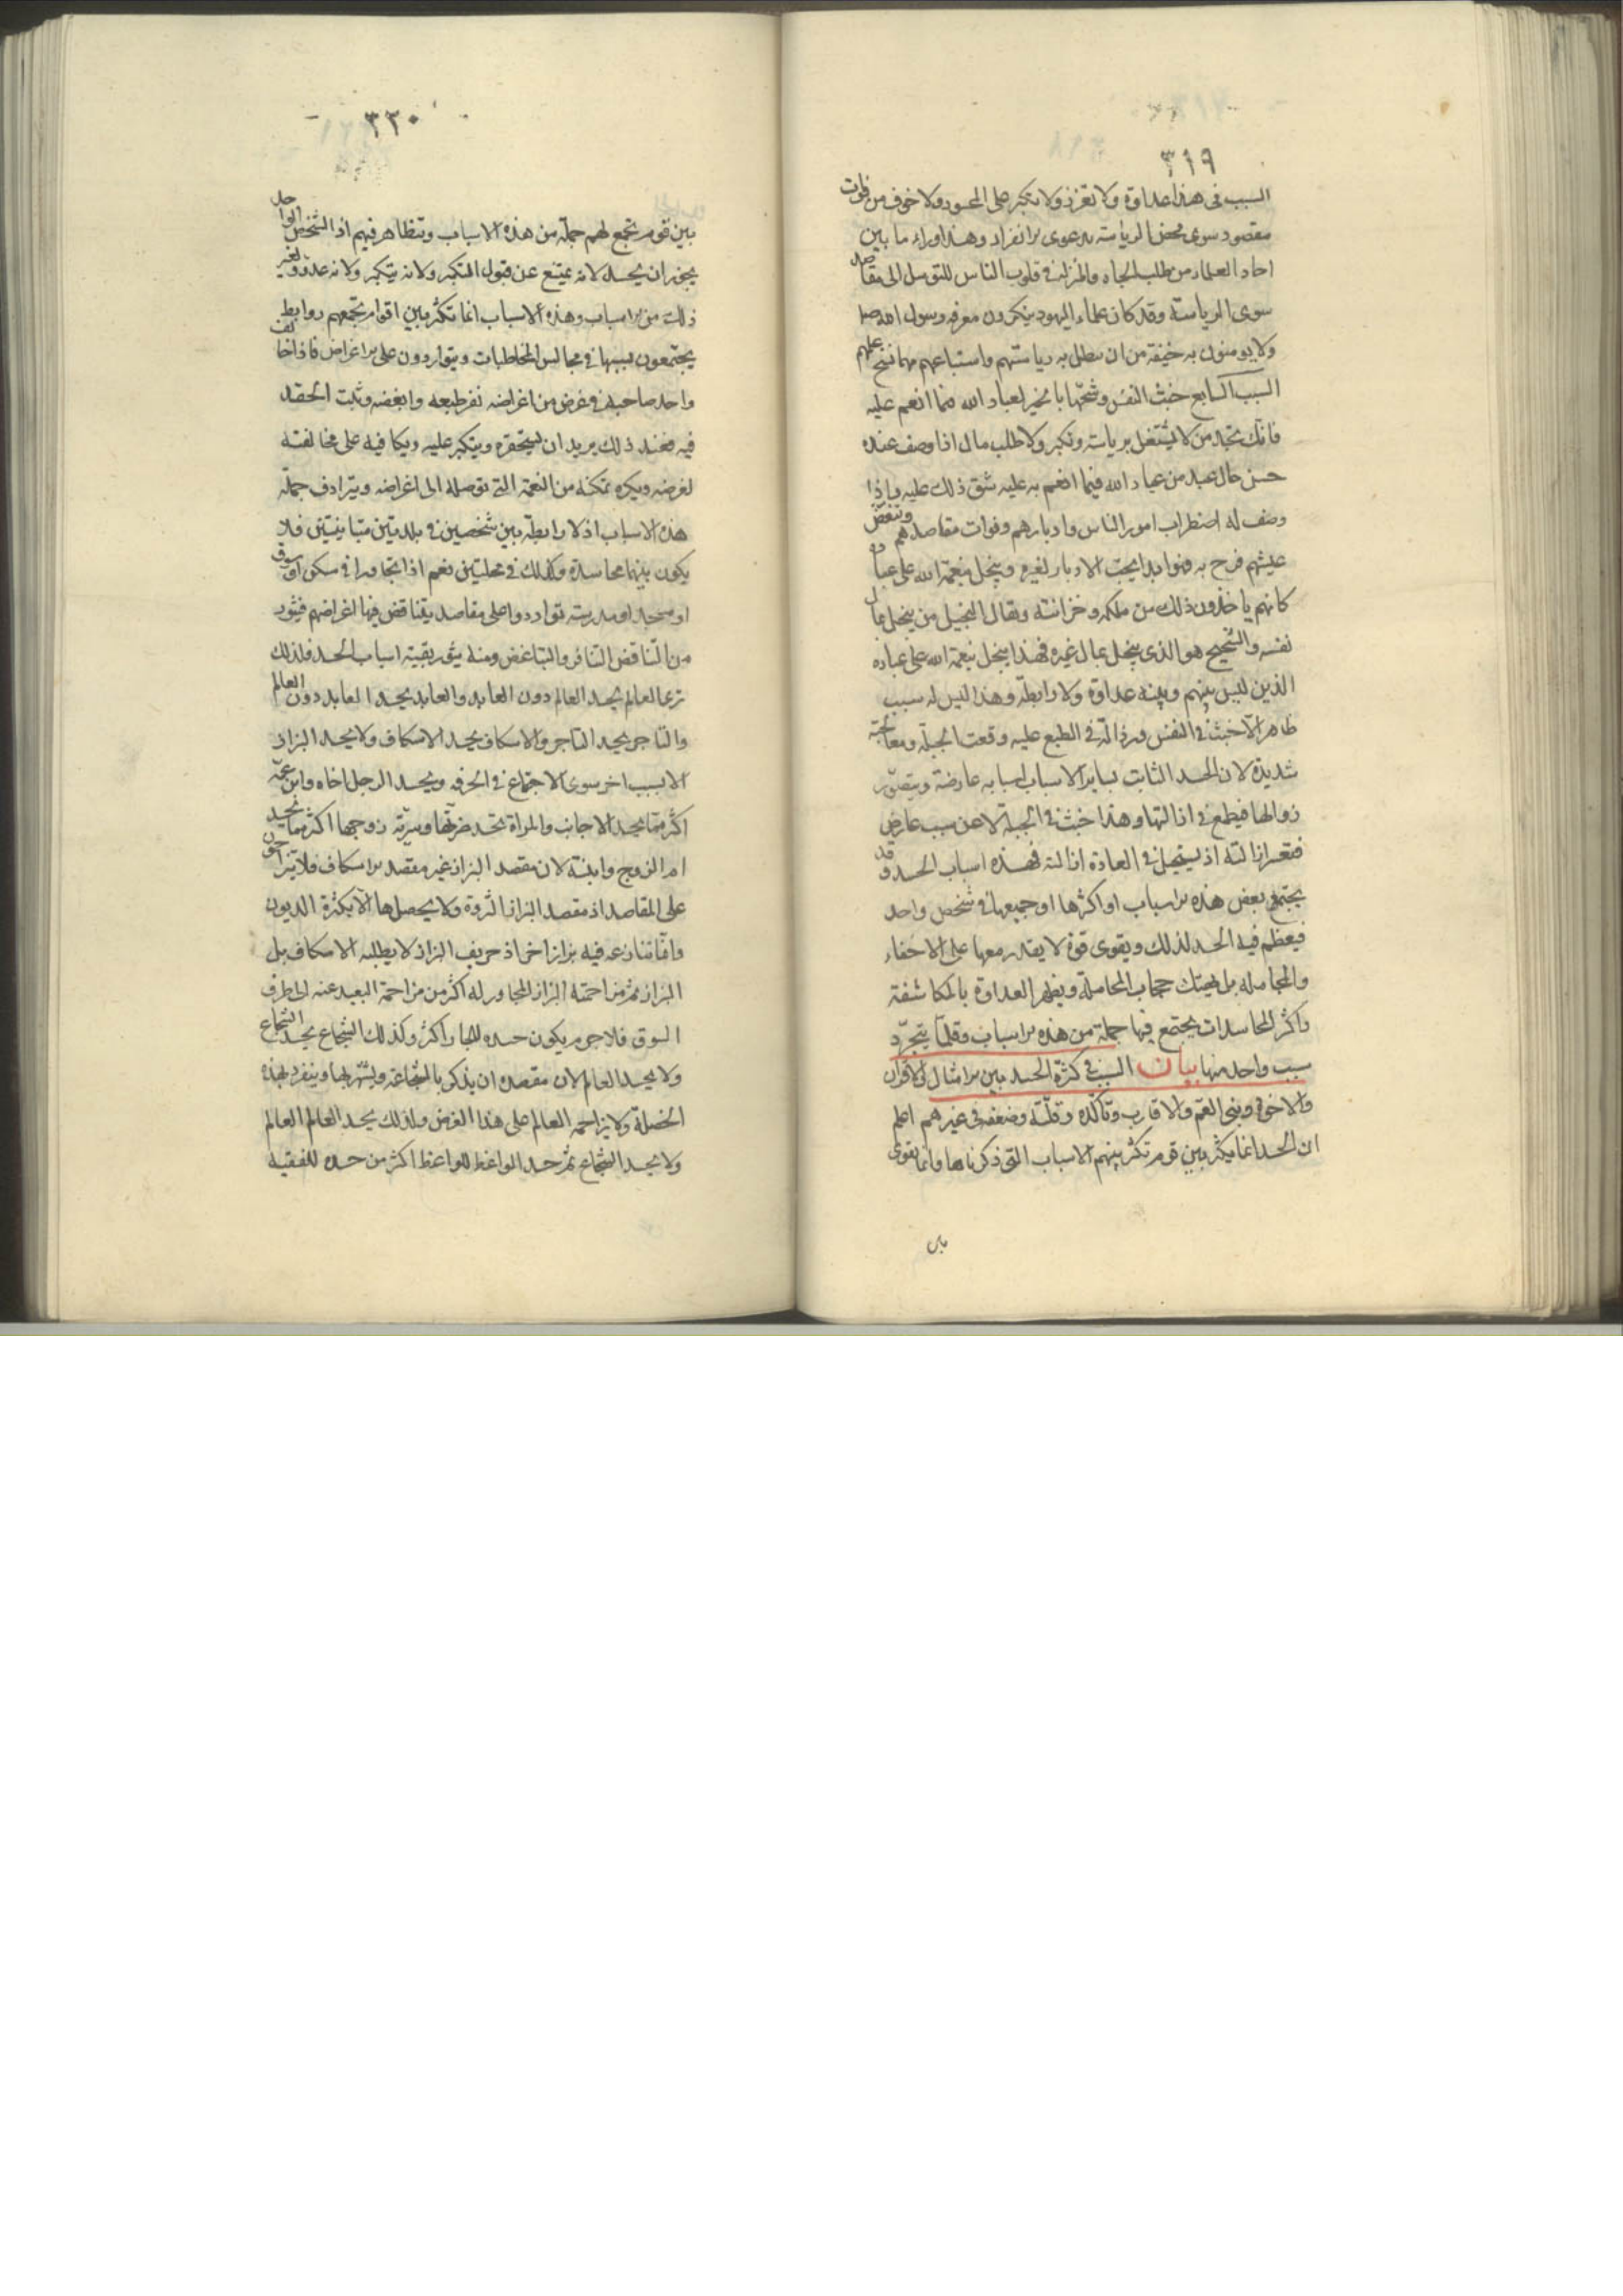 ٣١٩
السبب فى هذا عداوة ولا تعزز ولا تكبر على المحسود ولا خوف من فوات
مقصود سوى محض الرياسة بدعوى الانفراد وهذا وراء ما بين
احاد العلماء من طلب الجاه والمنزلة فى قلوب الناس للتوسل الى مقاصد
سوى الرياسة وقد كان علماء اليهود ينكرون معرفه رسول الله صلعم
ولا يومنون به خيفة من ان يبطل به رياستهم واستتباعهم مهما نسخ علمهم
السبب السابع خبث النفس وشحها بالخير لعباد الله فما انعم عليه
فانك تجد من لا يشتغل برياسة وتكبر ولا طلب مال اذا وصف عنده
حسن حال عبد من عباد الله فيما انعم به عليه شق ذلك عليه واذا
وصف له اضطراب امور الناس وادبارهم وفوات مقاصدهم وتنغص
عيشهم فرح به فهو ابدا يحبّ الادبار لغيره ويبخل بنعمة الله على عباده
كانهم ياخذون ذلك من ملكه وخزانته ويقال البخيل من يبخل بمال
نفسه والشحيح هو الذى يبخل بمال غيره فهذا يبخل بنعمة الله على عباده
الذين ليس بينهم وبينه عداوة ولا رابطة وهذا ليس له سبب
ظاهر الا خبث فى النفس ورذالة فى الطبع عليه وقعت الجبلة ومعالجته
شديدة لان الحسد الثابت بساير الاسباب اسبابه عارضة ويتصوّر
زوالها فيطمع فى ازالتها وهذا خبث فى الجبلة لا عن سبب عارض
فتعسر ازالته اذ يستحيل فى العادة ازالته فهذه اسباب الحسد وقد
يجتمع بعض هذه الاسباب او اكثرها او جميعها فى شخص واحد
فيعظم فيه الحسد لذلك ويقوى قوة لا يقدر معها على الاخفاء
والمجامله بل يهتك حجاب المجاملة ويظهر العداوة بالمكاشفة
واكثر المحاسدات يجتمع فيها جملة من هذه الاسباب وقلّما يتجرّد
سبب واحد منها بيان السبب فى كثرة الحسد بين الامثال والاقران
والاخوة وبنى العمّ والاقارب وتأكّده وقلّته وضعفه فى غيرهم اعلم
ان الحسد انما يكثر بين قوم تكثر بينهم الاسباب التى ذكرناها وانما يقوى
بين
٣٢٠
بين قوم تجمع لهم جملة من هذه الاسباب وتتظاهر فيهم اذ الشخص الواحد
يجوز ان يحسد لانه يمتنع عن قبول التكبر ولانه يتكبر ولانه عدوّ ولغير
ذلك من الاسباب وهذه الاسباب انما تكثر بين اقوام تجمعهم روابط
يجتمعون بسببها فى مجالس المخاطبات ويتواردون على الاغراض فاذا خالف
واحد صاحبه فى غرض من اغراضه نفر طبعه وابغضه وثبت الحقد
فيه فعند ذلك يريد ان يستحقره ويتكبر عليه ويكافيه على مخالفته
لغرضه ويكره تمكنه من النعمة التى توصله الى اغراضه ويترادف جملة
هذه الاسباب اذ لا رابطة بين شخصين فى بلدتين متباينتين فلا
يكون بينهما محاسدة وكذلك فى محلتين نعم اذا تجاورا فى مسكن او سوق
او مسجد او مدرسة تواردوا على مقاصد يتناقض فيها اغراضهم فيثور
من التناقض التنافر والتباغض ومنه يثور بقيّة اسباب الحسد فلذلك
ترى العالم يحسد العالم دون العابد والعابد يحسد العابد دون العالم
والتاجر يحسد التاجر والاسكاف يحسد الاسكاف ولا يحسد البزاز
الا بسبب اخر سوى الاجتماع فى الحرفة ويحسد الرجل اخاه وابن عمّه
اكثر ممّا يحسد الاجانب والمراة تحسد ضرّتها وسريّة زوجها اكثر مما تحسد
ام الزوج وابنته لان مقصد البزاز غير مقصد الاسكاف فلا يتزاحمون
على المقاصد اذ مقصد البزاز الثروة ولا يحصلها الّا بكثرة الزبون
وانّما تنازعه فيه بزاز اخر اذ حريف البزاز لا يطلبه الاسكاف بل
البزاز ثم مزاحمة البزاز المجاور له اكثر من مزاحمة البعيد عنه الى طرف
السوق فلا جرم يكون حسده للجار اكثر وكذلك الشجاع يحسد الشجاع
ولا يحسد العالم لان مقصده ان يذكر بالشجاعة ويشتهر بها وينفرد بهذه
الخصلة ولا يزاحمه العالم على هذا الغرض ولذلك يحسد العالم العالم
ولا يحسد الشجاع ثم حسد الواعظ للواعظ اكثر من حسده للفقيه